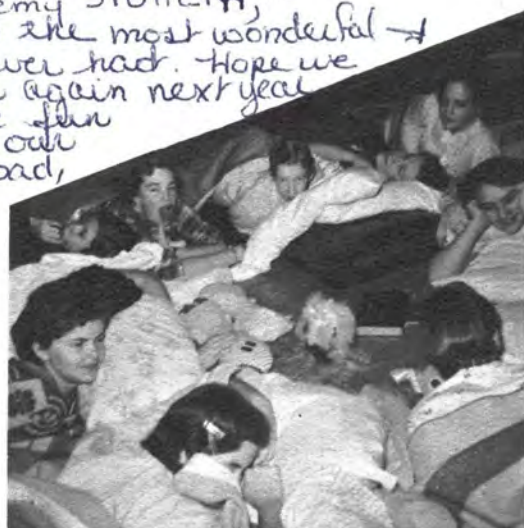 the most wonderful
ever had. Hope we
again next year
fun
our